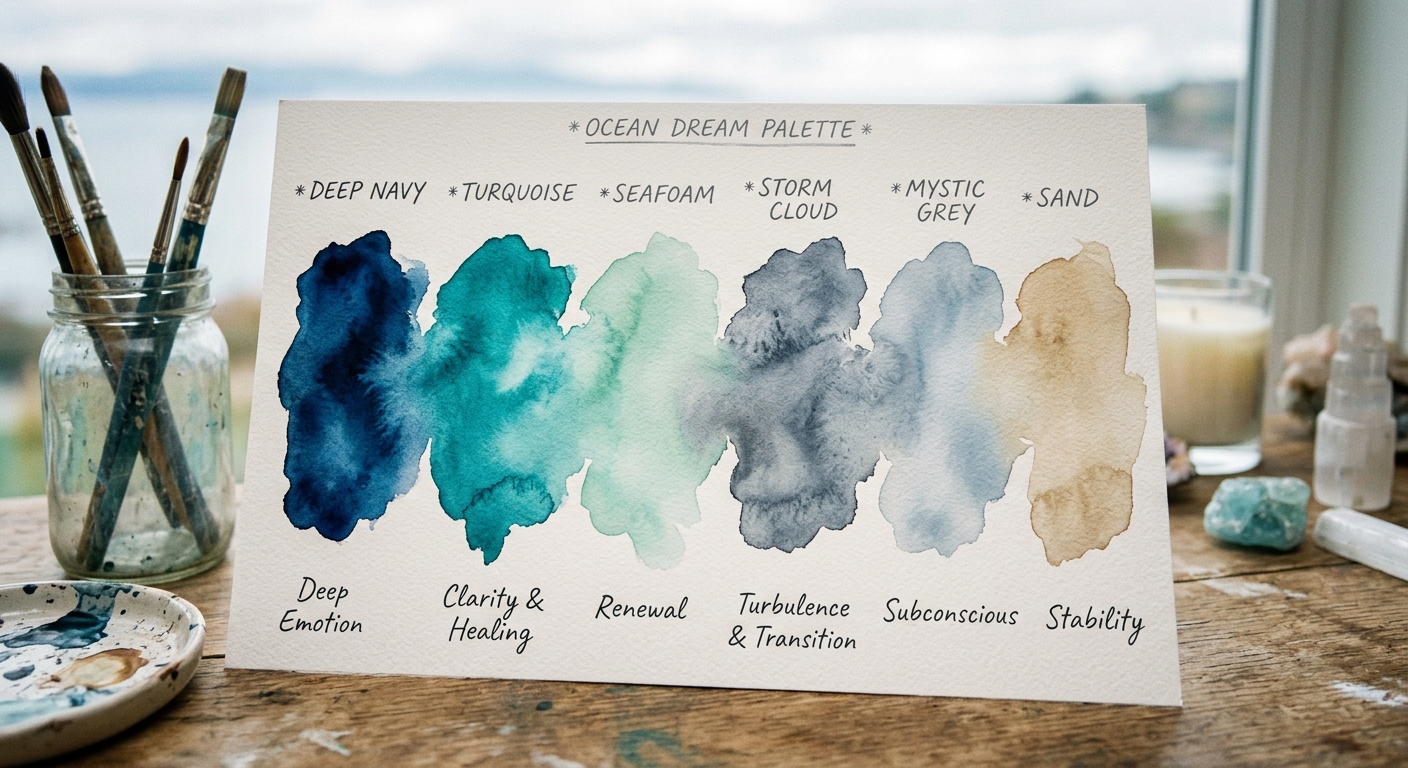 *OCEAN DREAM PALETTE*
*DEEP NAVY
*TURQUOISE
*SEAFOAM
*STORM
CLOUD
*MYSTIC
GREY
*SAND
Deep
Emotion
Clarity &
Healing
Renewal
Turbulence
& Transition
Subconscious
Stability